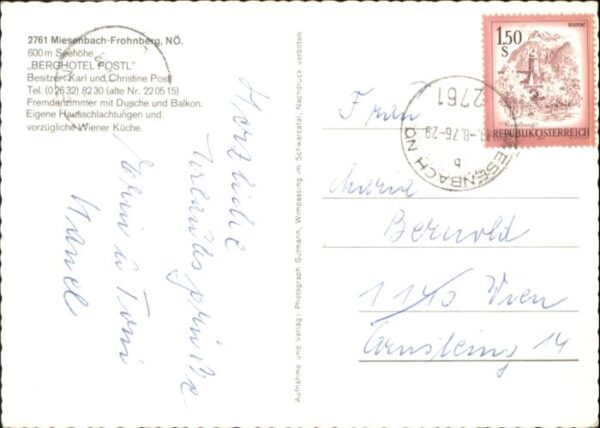 2761 Miesenbach-Frohnberg, NÖ.
600 m Seehöhe
„BERGHOTEL POSTL"
Besitzer: Karl und Christine Postl
Tel. (0 26 32) 82 30 (alte Nr. 22 05 15)
Fremdenzimmer mit Dusche und Balkon.
Eigene Hausschlachtungen und
vorzügliche Wiener Küche.
Herzliche
Urlaubsgrüße
u Toni
Aufnahme und Verlag: Photograph Gutmann, Wimpassing im Schwarzatal, Nachdruck verboten
1.50
S
REPUBLIK ÖSTERREICH
2761
-8.76-
b
MIESENBACH NÖ
Frau
Maria
Bernold
1140 Wien
14